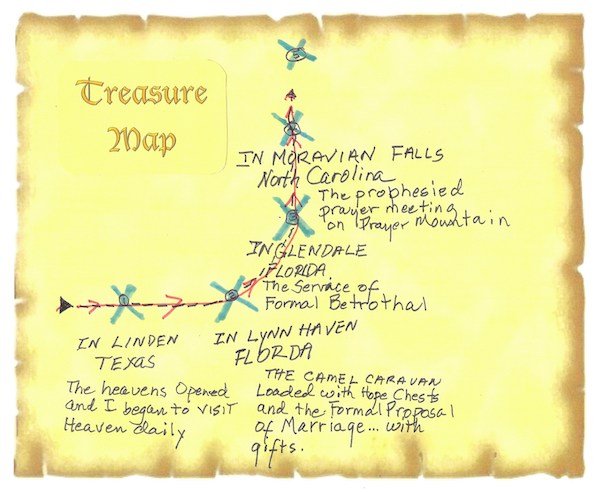 Treasure
Map
IN MORAVIAN FALLS
North Carolina
The prophesied
prayer meeting
on Prayer Mountain
IN GLENDALE
FLORIDA
The Service of
Formal Betrothal
IN LINDEN
TEXAS
The heavens Opened
and I began to VISIT
Heaven daily
IN LYNN HAVEN
FLORDA
THE CAMEL CARAVAN
Loaded with Hope Chests
and the Formal Proposal
of Marriage... with
gifts.